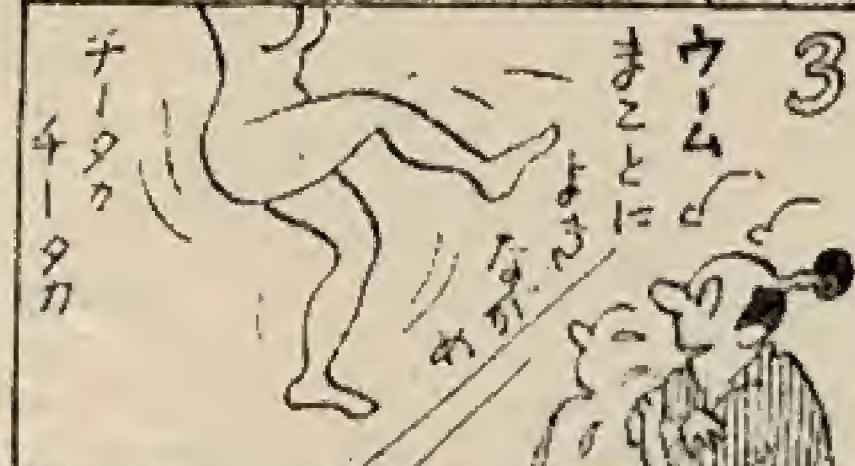 3
ウーム
まことに
よき
ながめ
チータカ
チータカ